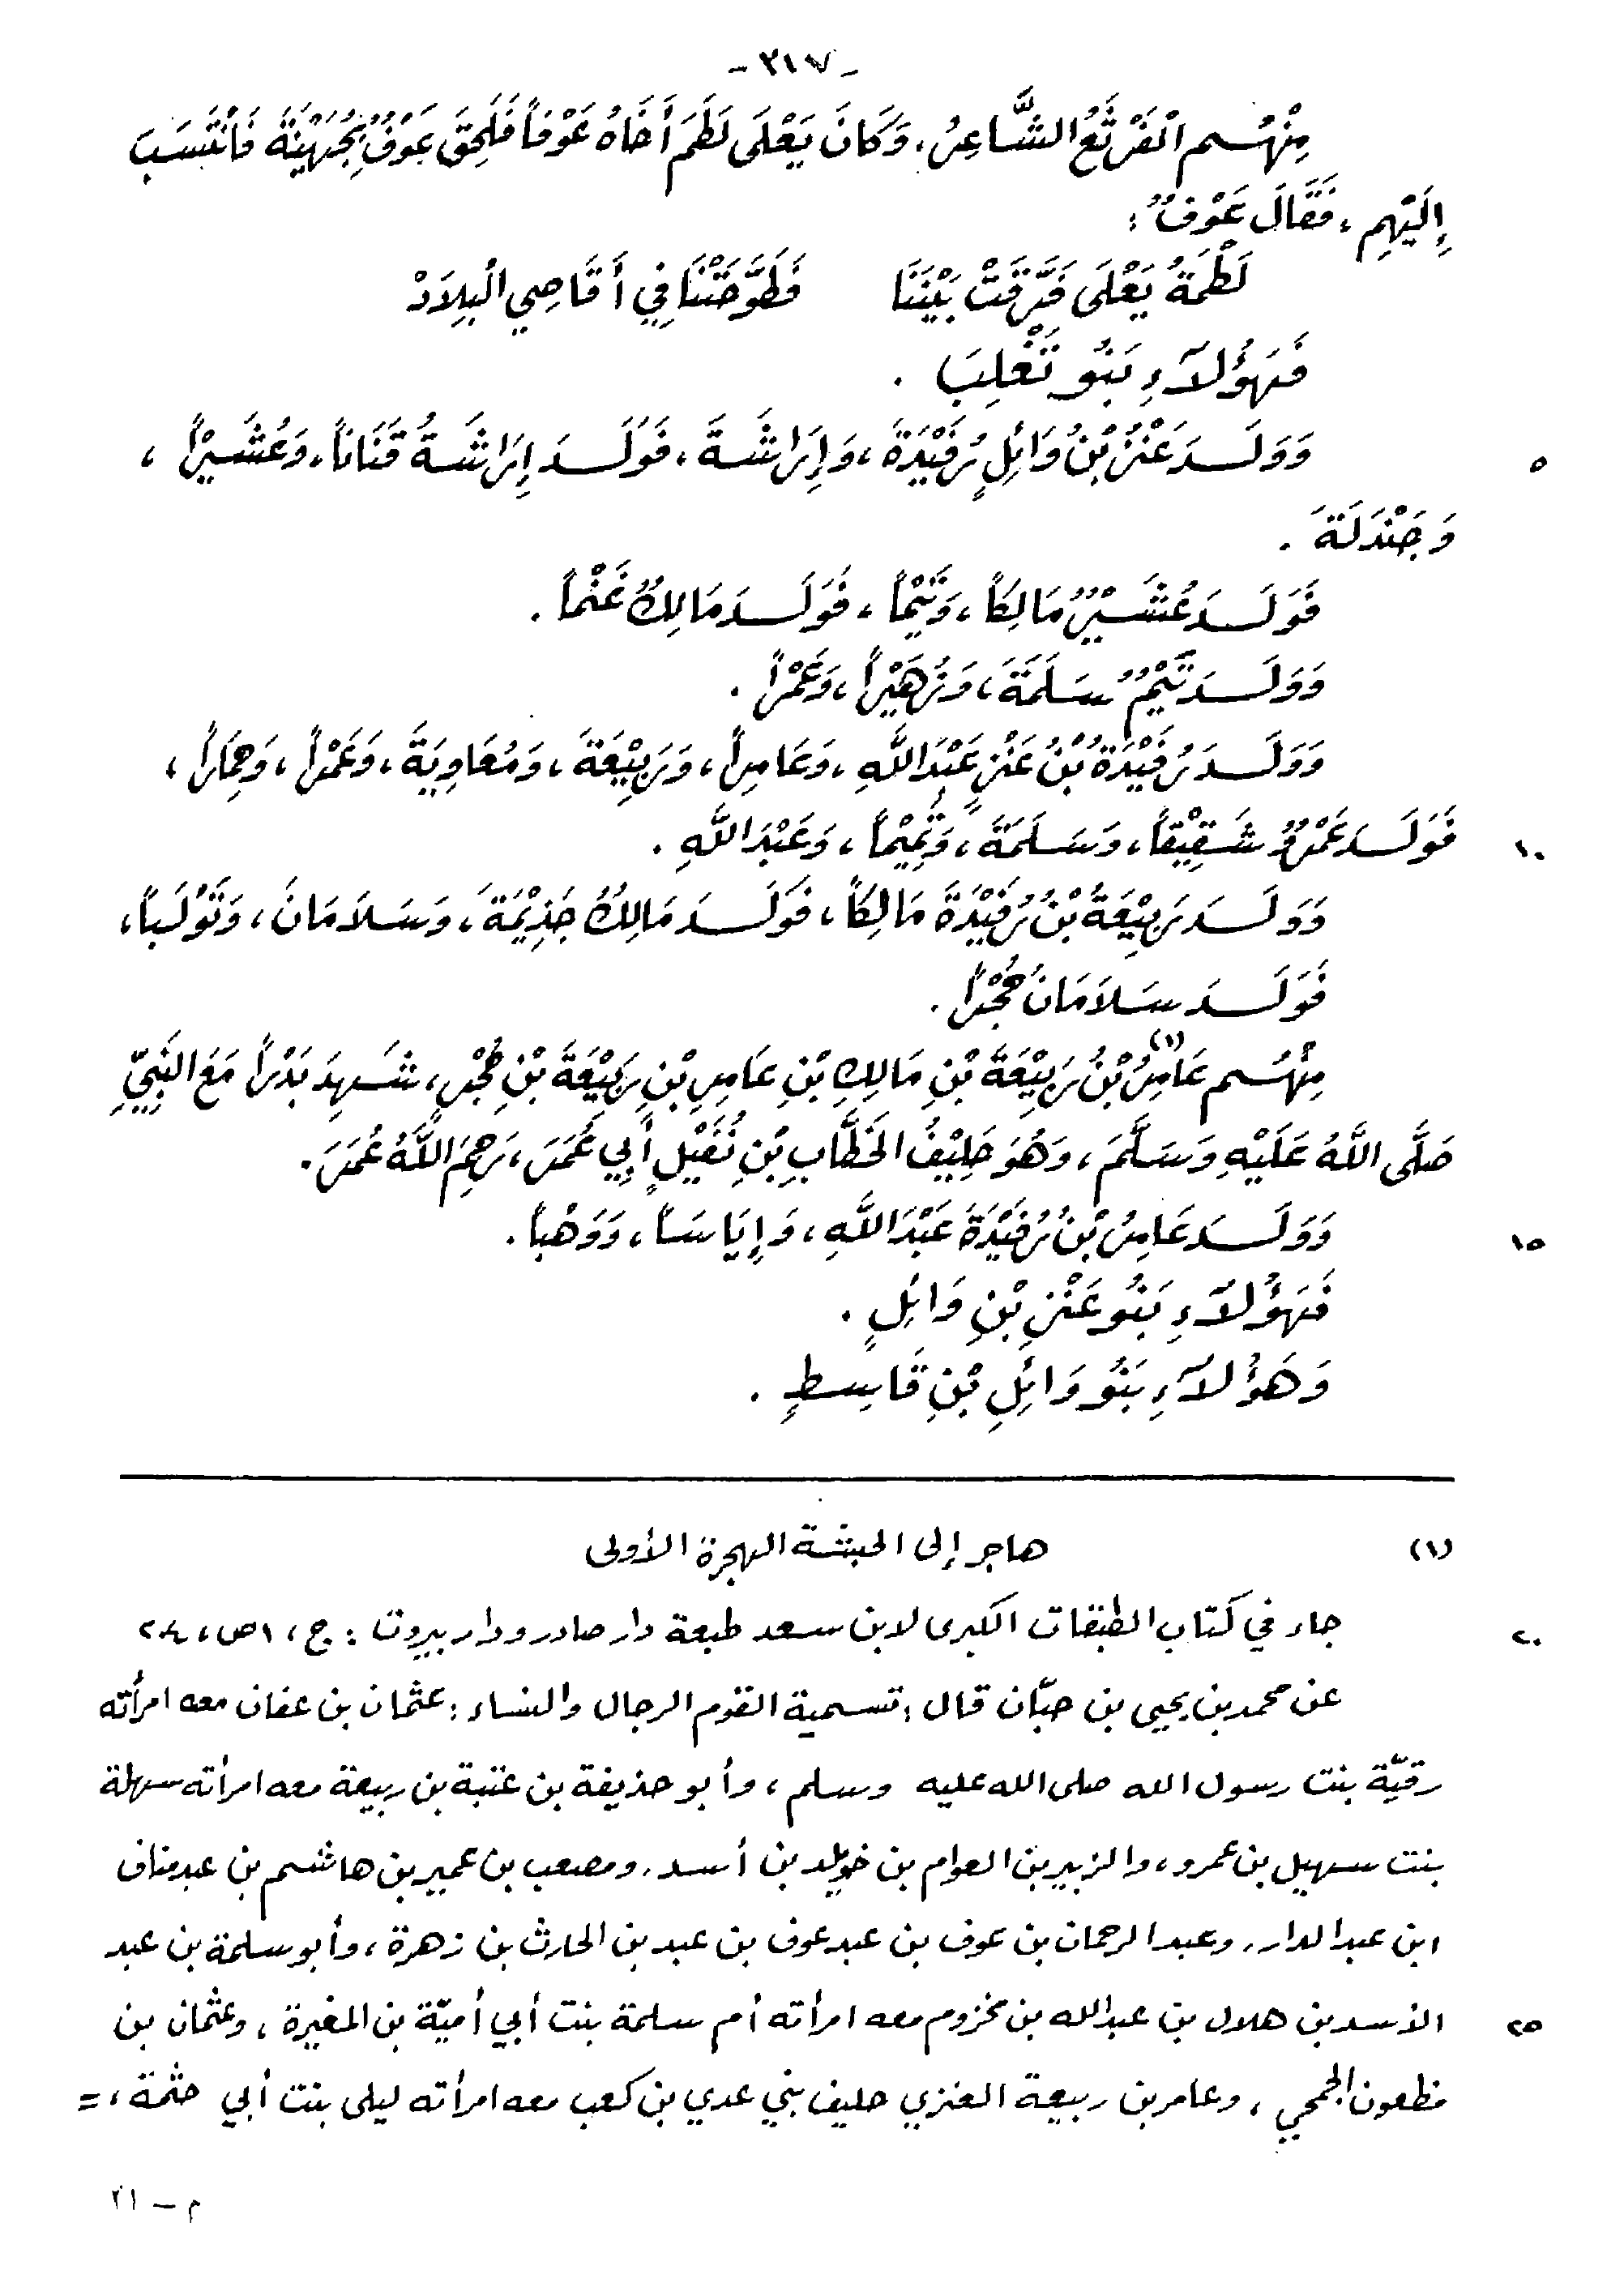 - ٣١٧ -
مِنْهُم الْقَرْثَعُ الشَّاعِرُ، وَكَانَ يَعْلَى لَطَمَ أَخَاهُ عَوْفاً فَلَحِقَ عَوْفٌ بِجُهَيْنَةَ فَانْتَسَبَ
إِلَيْهِم، فَقَالَ عَوْفٌ:
لَطْمَةُ يَعْلَى فَرَّقَتْ بَيْنَنَا فَطَوَّحَتْنَا فِي أَقَاصِي الْبِلَادْ
فَهَؤُلَاءِ بَنُو تَغْلِبَ .
٥ وَوَلَدَ عَنْزُ بْنُ وَائِلٍ رُفَيْدَةَ، وَإِرَاشَةَ، فَوَلَدَ إِرَاشَةُ قَنَاناً، وَعُشَيْراً،
وَجَنْدَلَةَ .
فَوَلَدَ عُشَيْرٌ مَالِكاً، وَتَيْماً، فَوَلَدَ مَالِكٌ غَنْماً .
وَوَلَدَ تَيْمٌ سَلَمَةَ، وَزُهَيْراً، وَعَمْراً .
وَوَلَدَ رُفَيْدَةُ بْنُ عَنْزٍ عَبْدَ اللَّهِ، وَعَامِراً، وَرَبِيْعَةَ، وَمُعَاوِيَةَ، وَعَمْراً، وَحِمَاراً،
١٠ فَوَلَدَ عَمْرٌو شَقِيْقاً، وَسَلَمَةَ، وَتَمِيْماً، وَعَبْدَ اللَّهِ .
وَوَلَدَ رَبِيْعَةُ بْنُ رُفَيْدَةَ مَالِكاً، فَوَلَدَ مَالِكٌ جَذِيْمَةَ، وَسَلَامَانَ، وَتَوْلَباً،
فَوَلَدَ سَلَامَانُ حُجْراً .
مِنْهُم عَامِرُ (١) بْنُ رَبِيْعَةَ بْنِ مَالِكِ بْنِ عَامِرِ بْنِ رَبِيْعَةَ بْنِ حُجْرٍ، شَهِدَ بَدْراً مَعَ النَّبِيِّ
صَلَّى اللَّهُ عَلَيْهِ وَسَلَّمَ، وَهُوَ حَلِيْفُ الْخَطَّابِ بْنِ نُفَيْلٍ أَبِي عُمَرَ، رَحِمَ اللَّهُ عُمَرَ .
١٥ وَوَلَدَ عَامِرُ بْنُ رُفَيْدَةَ عَبْدَ اللَّهِ، وَإِيَاساً، وَوَهْباً .
فَهَؤُلَاءِ بَنُو عَنْزِ بْنِ وَائِلٍ .
وَهَؤُلَاءِ بَنُو وَائِلِ بْنِ قَاسِطٍ .
(١) هاجر إلى الحبشة الهجرة الأولى
٢٠ جاء في كتاب الطبقات الكبرى لابن سعد طبعة دار صادر ودار بيروت : ج، ١ ص، ٢٠٤
عن محمد بن يحيى بن حبّان قال : تسمية القوم الرجال والنساء : عثمان بن عفان معه امرأته
رقيّة بنت رسول الله صلى الله عليه وسلم، وأبو حذيفة بن عتبة بن ربيعة معه امرأته سهلة
بنت سهيل بن عمرو، والزبير بن العوام بن خويلد بن أسد، ومصعب بن عمير بن هاشم بن عبد مناف
ابن عبد الدار، وعبد الرحمان بن عوف بن عبد عوف بن عبد بن الحارث بن زهرة، وأبو سلمة بن عبد
٢٥ الأسد بن هلال بن عبدالله بن مخزوم معه امرأته أم سلمة بنت أبي أميّة بن المغيرة، وعثمان بن
مظعون الجمحي، وعامر بن ربيعة العنزي حليف بني عدي بن كعب معه امرأته ليلى بنت أبي حثمة، =
م - ٢١